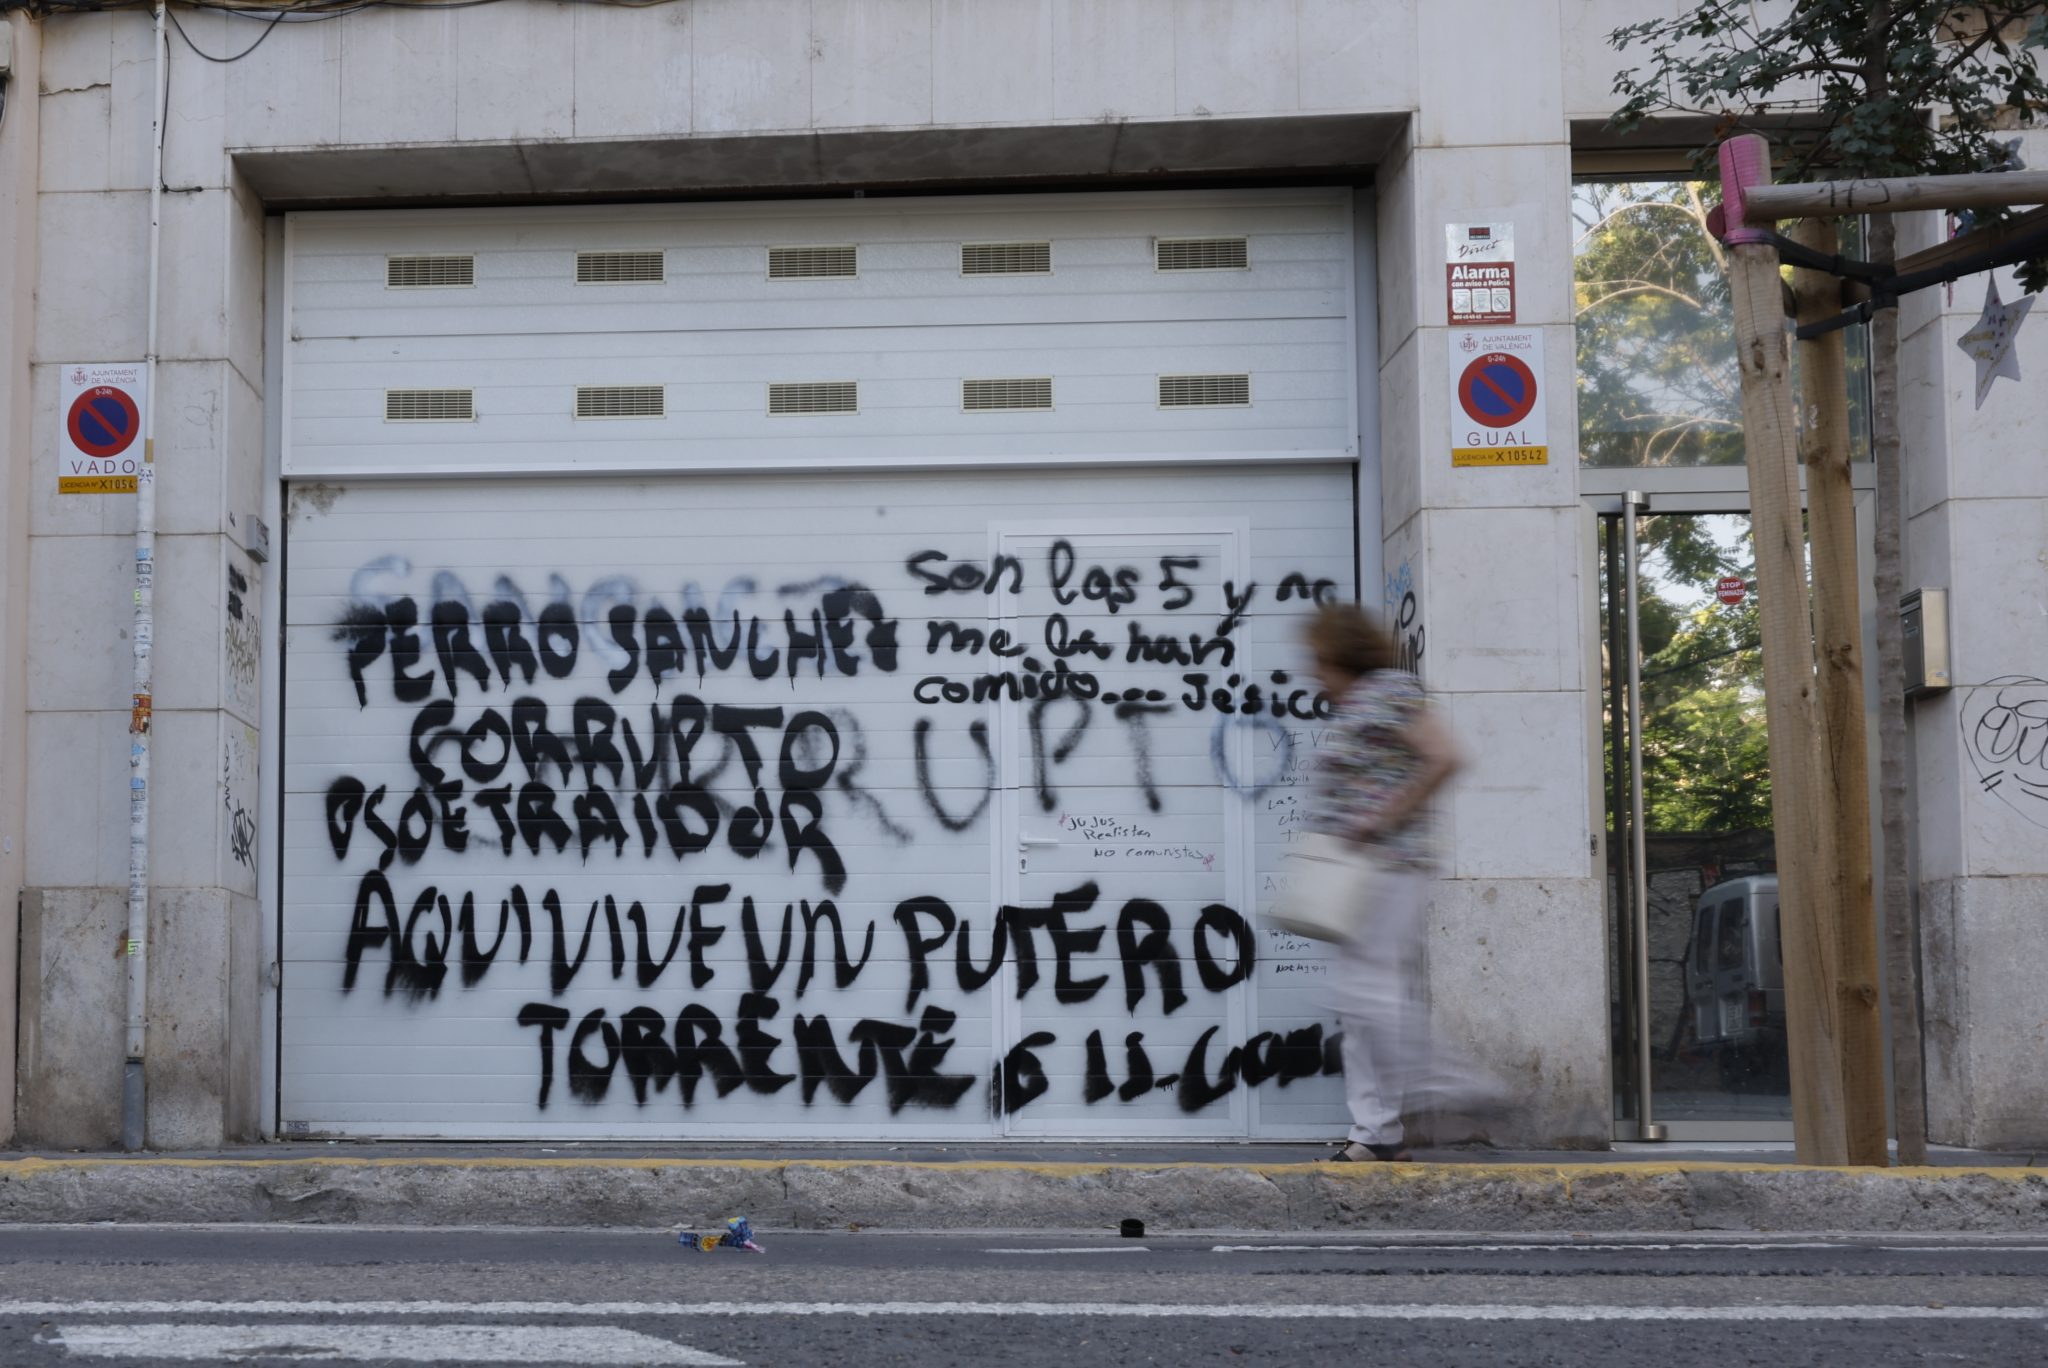 AJUNTAMENT
DE VALÈNCIA
0-24h
VADO
LICENCIA Nº X1054
Direct
Alarma
con aviso a Policía
AJUNTAMENT
DE VALÈNCIA
0-24h
GUAL
LLICÈNCIA Nº X10542
119
STOP
FEMINAZIS
PERRO SANCHEZ
CORRUPTO
PSOE TRAIDOR
AQUI VIVE UN PUTERO
TORRENTE
Son las 5 y no
me la han
comido... Jésica
RUPTO
VIVA
JuJus
Realistas
NO comunistas